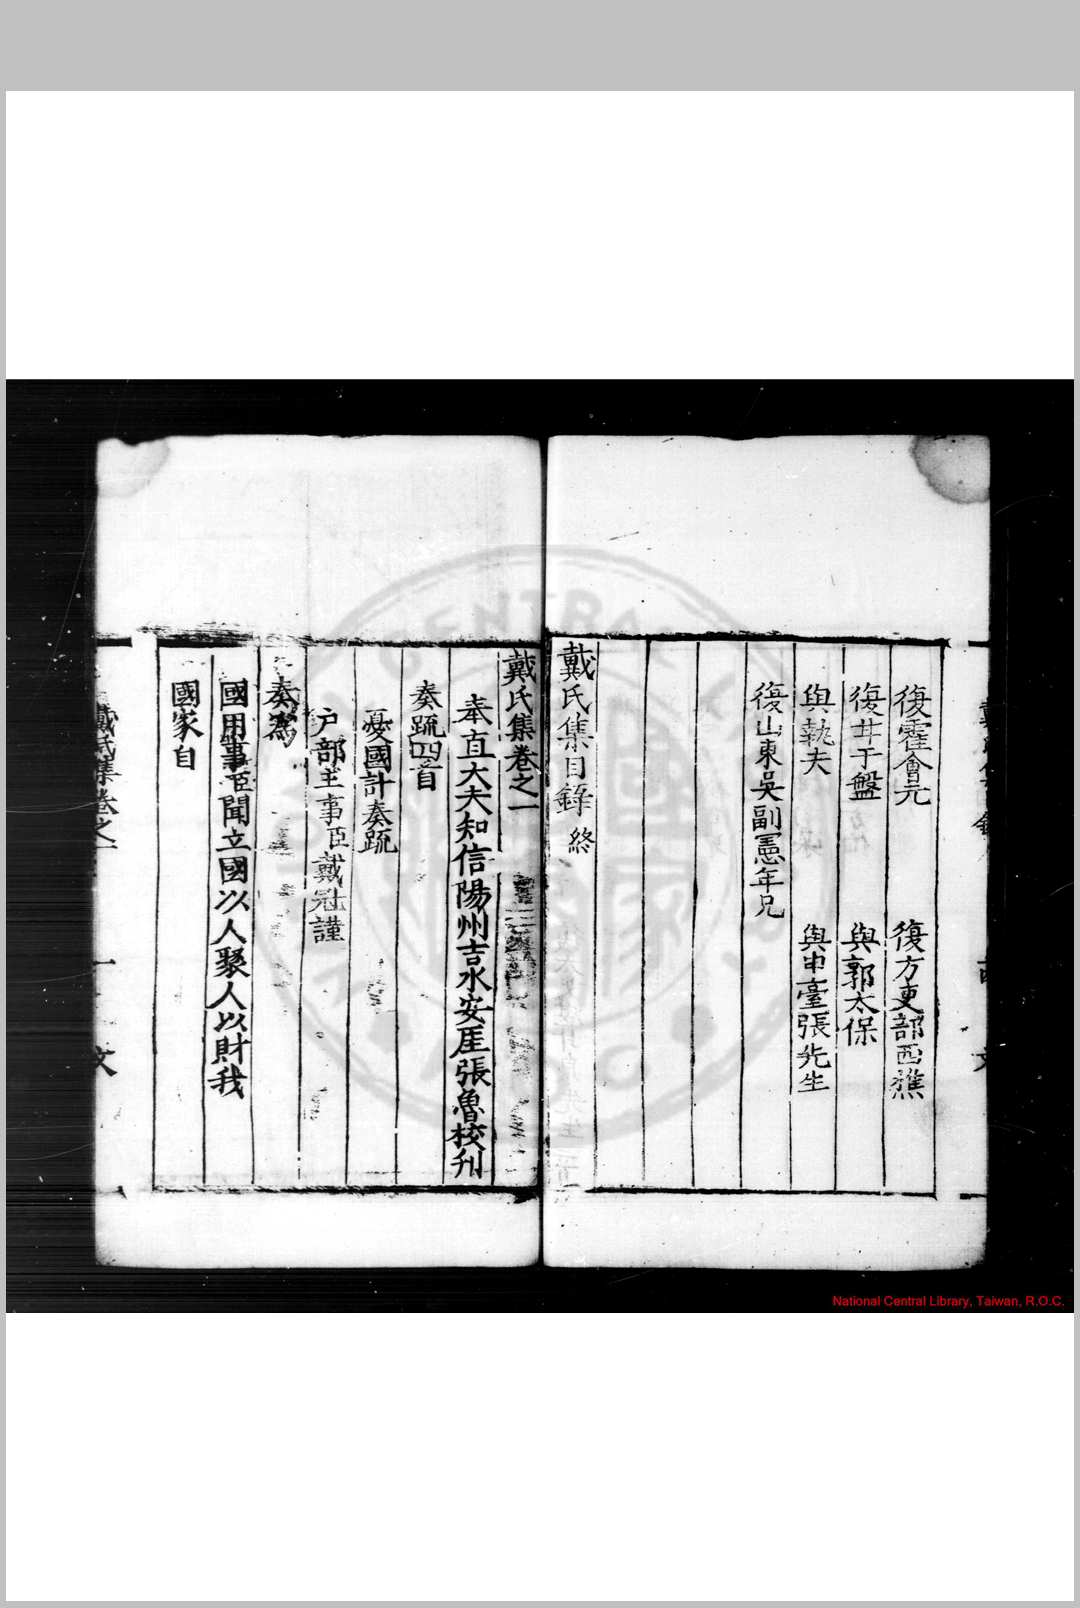 復霍會元
復方吏部西樵
復井于盤
與郭太保
與執夫
與中臺張先生
復山東吳副憲年兄
戴氏集目錄終
戴氏集卷之一
奉直大夫知信陽州吉水安厓張魯校刋
奏疏四首
憂國計奏疏
戶部主事臣戴冠謹
奏為
國用事臣聞立國以人聚人以財我
國家自
戴氏集卷之一
一
文
National Central Library, Taiwan, R.O.C.